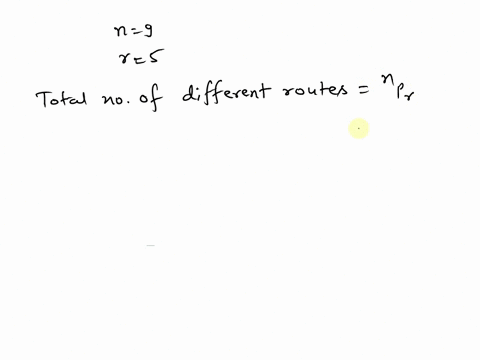 n=9
r=5
Total no. of different routes = ⁿPᵣ